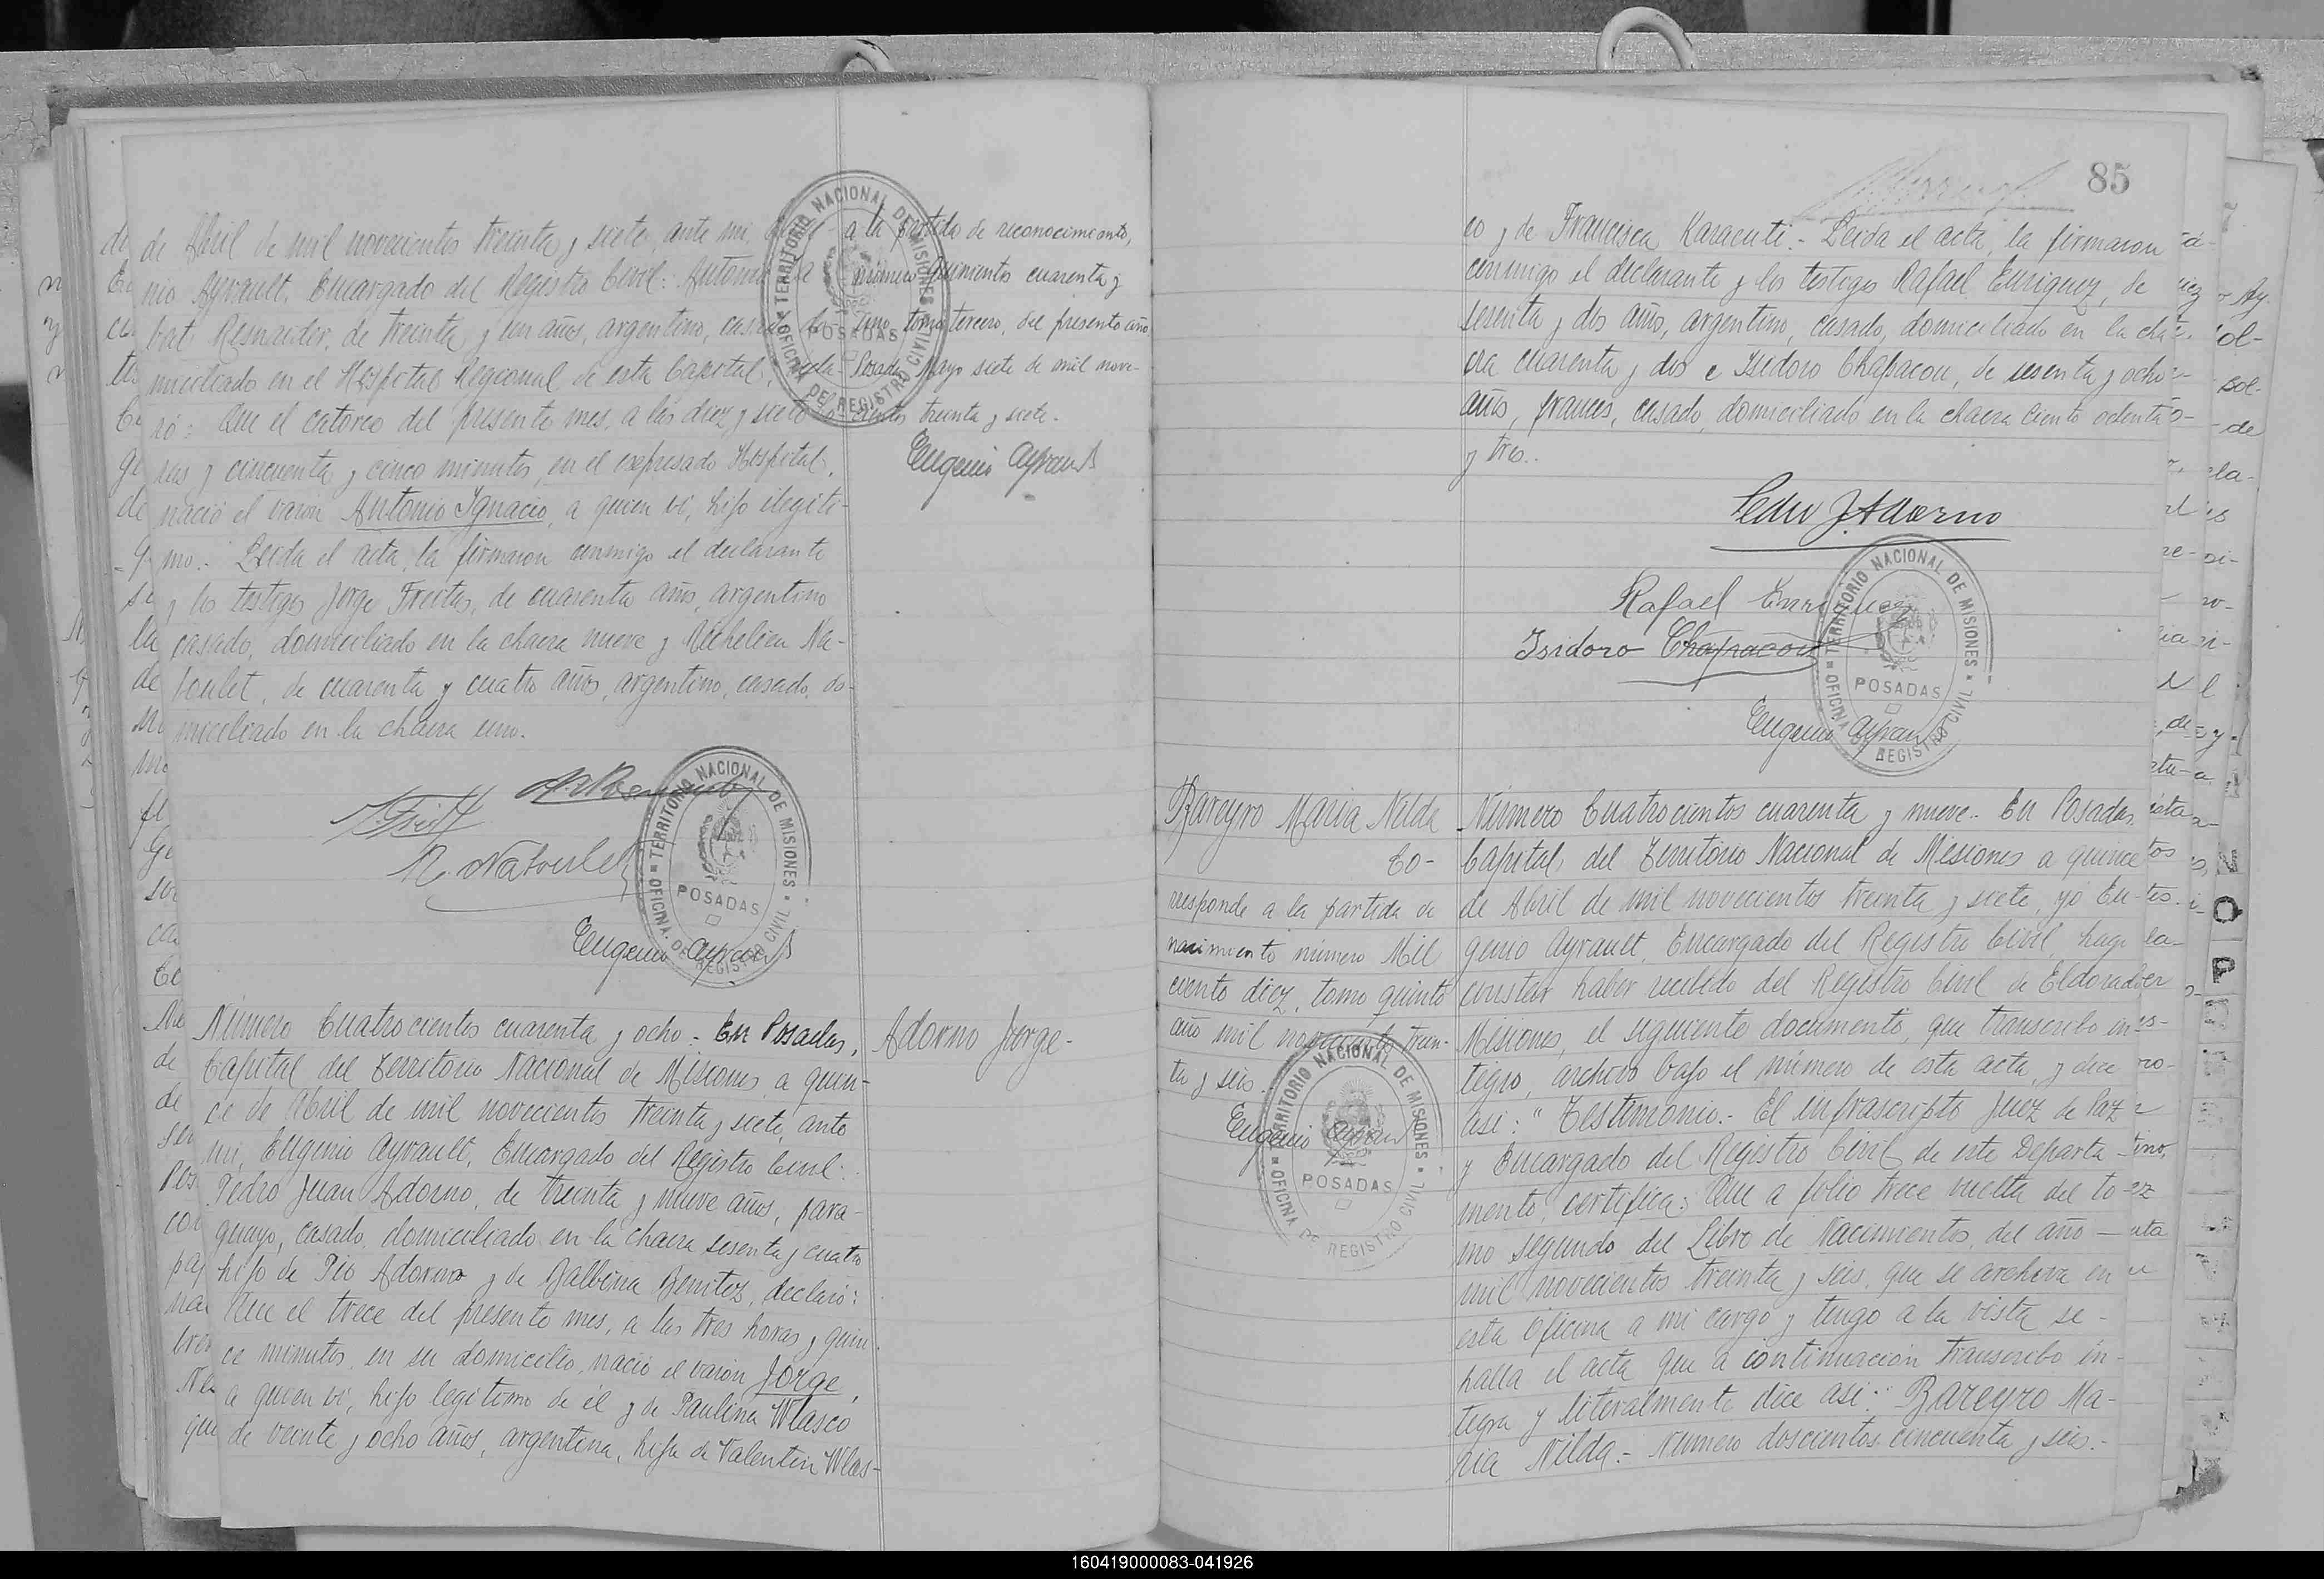 de Abril de mil novecientos treinta y siete, ante mi,
nio Ayrault, Encargado del Registro Civil: Antonio
bal Resnaider, de treinta y un años, argentino, casado, do-
miciliado en el Hospital Regional de esta Capital, decla-
ró: Que el catorce del presente mes, a las diez y siete
ras y cincuenta y cinco minutos, en el expresado Hospital,
nació el varón Antonio Ignacio, a quien vi, hijo ilegíti-
mo.- Leida el acta, la firmaron conmigo el declarante
y los testigos Jorge Freitas, de cuarenta años, argentino
casado, domiciliado en la chacra nueve y Richelieu Na-
boulet, de cuarenta y cuatro años, argentino, casado, do-
miciliado en la chacra uno.
a la partida de reconocimiento,
número quinientos cuarenta y
uno, tomo tercero, del presente año
Posadas, Mayo siete de mil nove-
cientos treinta y siete.
Eugenio Ayrault
TERRITORIO NACIONAL DE MISIONES
POSADAS
OFICINA DE REGISTRO CIVIL
R. Naboulet
TERRITORIO NACIONAL DE MISIONES
POSADAS
OFICINA DE REGISTRO CIVIL
Eugenio Ayrault
Adorno Jorge-
Número Cuatrocientos cuarenta y ocho.- En Posadas,
Capital del Territorio Nacional de Misiones, a quin-
ce de Abril de mil novecientos treinta y siete, ante
mi, Eugenio Ayrault, Encargado del Registro Civil:
Pedro Juan Adorno, de treinta y nueve años, para-
guayo, casado, domiciliado en la chacra sesenta y cuatro
hijo de Pio Adorno y de Balbina Benitez, declaró:
Que el trece del presente mes, a las tres horas y quin-
ce minutos, en su domicilio, nació el varón Jorge,
a quien vi, hijo legítimo de él y de Paulina Wlasco
de veinte y ocho años, argentina, hija de Valentin Wlas-
85
co y de Francisca Karacuti.- Leida el acta, la firmaron
conmigo el declarante y los testigos Rafael Enriquez, de
sesenta y dos años, argentino, casado, domiciliado en la cha-
cra cuarenta y dos e Isidoro Chapacou, de sesenta y ocho
años, frances, casado, domiciliado en la chacra ciento ochenta
y tres.-
Pedro J. Adorno
Rafael Enriquez
Isidoro Chapacou
TERRITORIO NACIONAL DE MISIONES
POSADAS
OFICINA DE REGISTRO CIVIL
Eugenio Ayrault
Bareyro Maria Nilda
Co-
rresponde a la partida de
nacimiento número Mil
ciento diez, tomo quinto
año mil novecientos trein-
ta y seis.
Eugenio Ayrault
TERRITORIO NACIONAL DE MISIONES
POSADAS
OFICINA DE REGISTRO CIVIL
Número Cuatrocientos cuarenta y nueve.- En Posadas,
Capital del Territorio Nacional de Misiones a quince
de Abril de mil novecientos treinta y siete, yo Eu-
genio Ayrault, Encargado del Registro Civil, hago
constar haber recibido del Registro Civil de Eldorado
Misiones, el siguiente documento, que transcribo in-
tegro, archivo bajo el número de esta acta, y dice
asi: "Testimonio.- El infrascripto Juez de Paz
y Encargado del Registro Civil de este Departa-
mento, certifica: Que a folio trece vuelta del to-
mo segundo del Libro de Nacimientos, del año —
mil novecientos treinta y seis, que se archiva en
esta Oficina a mi cargo y tengo a la vista, se -
halla el acta que a continuación transcribo in-
tegra y literalmente dice asi: Bareyro Ma-
ria Nilda.- Número doscientos cincuenta y seis.-
N
O
P
160419000083-041926